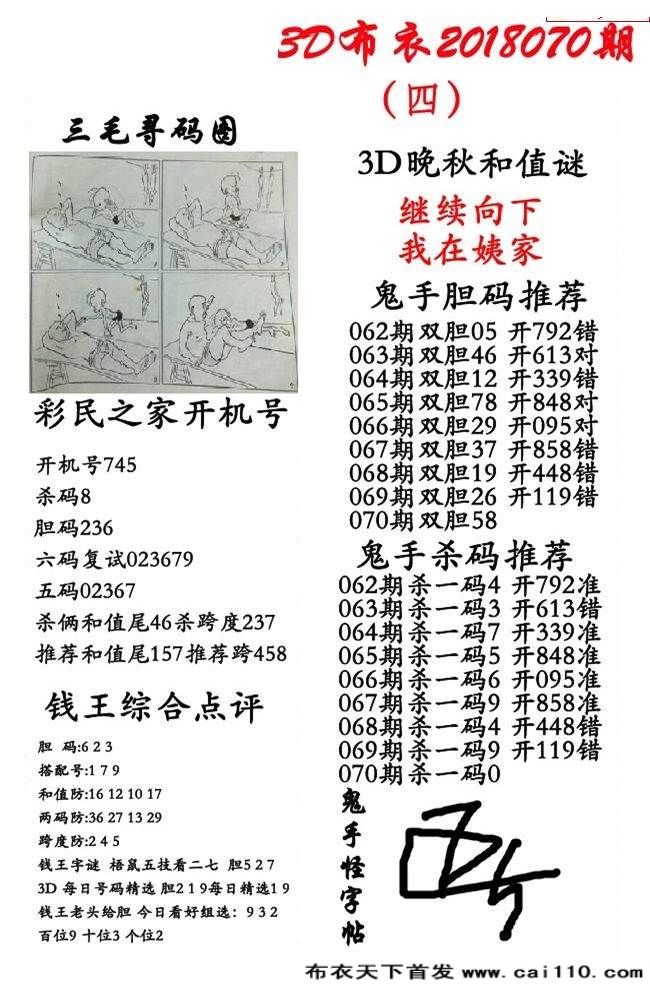 3D布衣2018070期
（四）
三毛寻码图
彩民之家开机号
开机号745
杀码8
胆码236
六码复试023679
五码02367
杀俩和值尾46杀跨度237
推荐和值尾157推荐跨458
钱王综合点评
胆 码:6 2 3
搭配号:1 7 9
和值防:16 12 10 17
两码防:36 27 13 29
跨度防:2 4 5
钱王字谜 梧鼠五技看二七 胆5 2 7
3D 每日号码精选 胆2 1 9每日精选1 9
钱王老头给胆 今日看好组选：9 3 2
百位9 十位3 个位2
3D晚秋和值谜
继续向下
我在姨家
鬼手胆码推荐
062期 双胆05 开792错
063期 双胆46 开613对
064期 双胆12 开339错
065期 双胆78 开848对
066期 双胆29 开095对
067期 双胆37 开858错
068期 双胆19 开448错
069期 双胆26 开119错
070期 双胆58
鬼手杀码推荐
062期 杀一码4 开792准
063期 杀一码3 开613错
064期 杀一码7 开339准
065期 杀一码5 开848准
066期 杀一码6 开095准
067期 杀一码9 开858准
068期 杀一码4 开448错
069期 杀一码9 开119错
070期 杀一码0
鬼手怪字帖
布衣天下首发 www.cai110.com